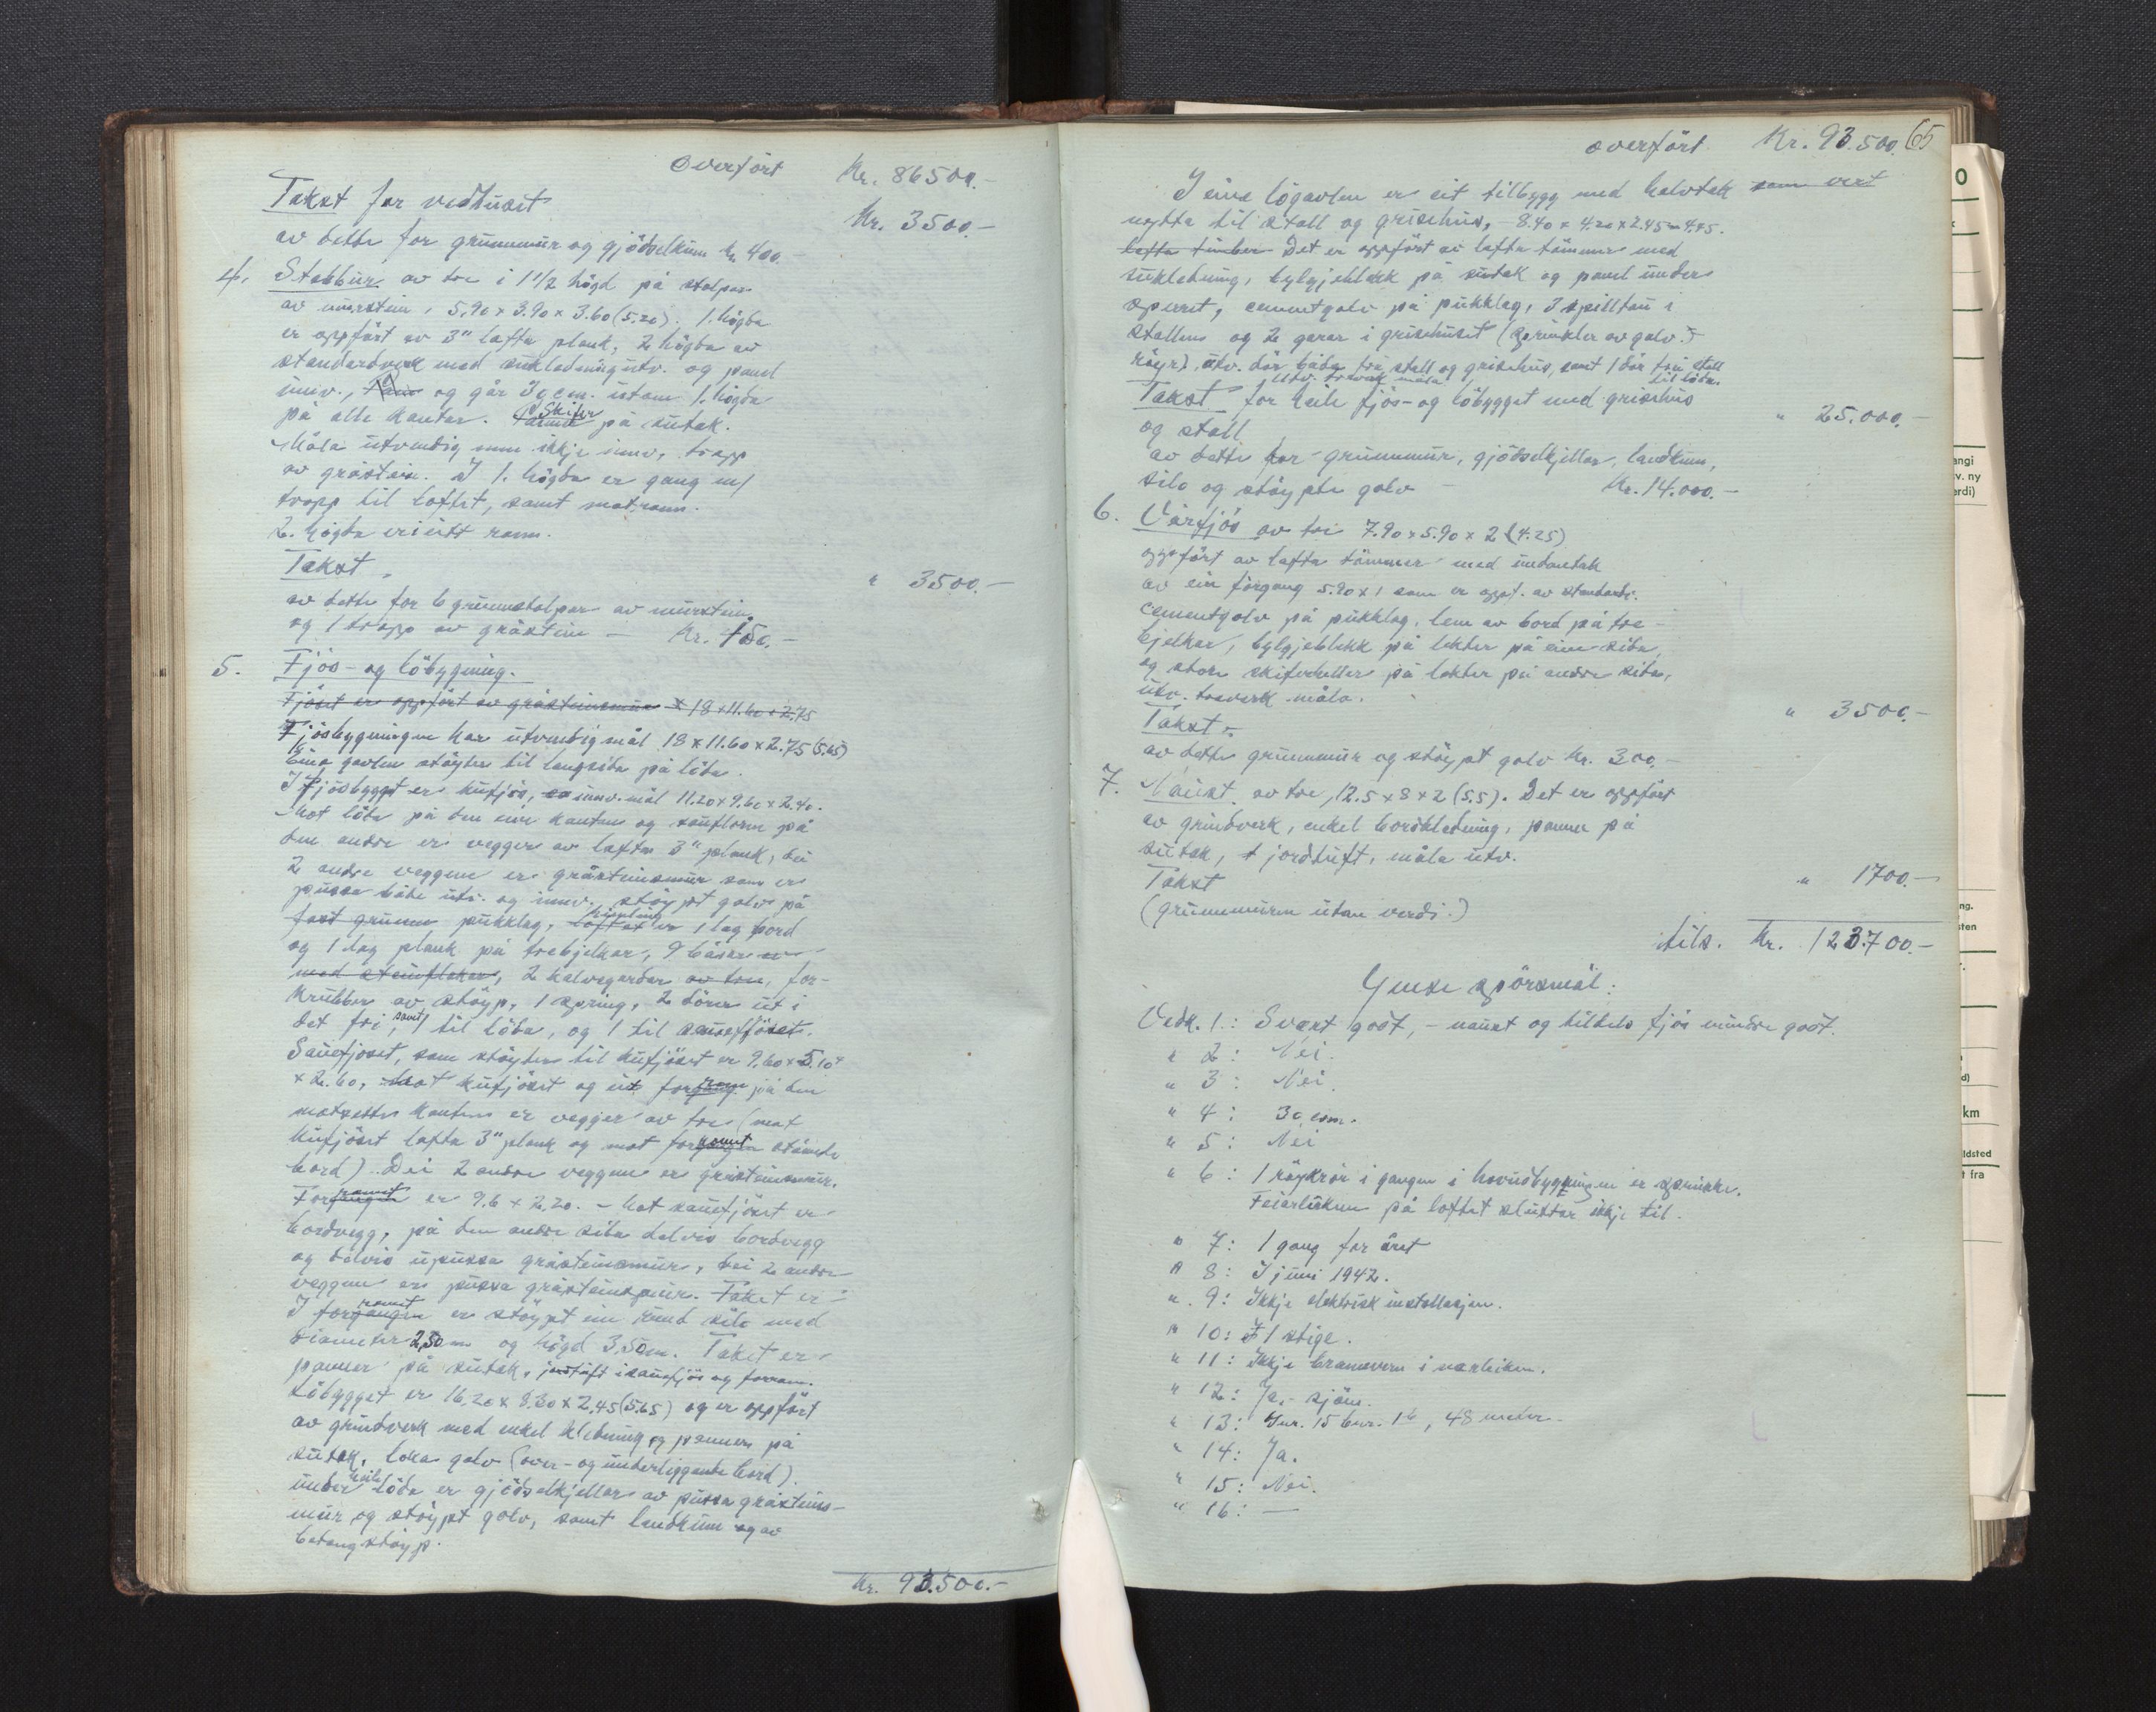 Overført Kr. 86500.-
Takst for vedhuset Kr. 3500.-
av dette for grunnmur og gjödselkum kr. 400.-
4. Stabbur av tre i 1 1/2 högd på stolpar
av murstein, 5.90 x 3.90 x 3.60 (5.20). 1. högda
er oppfört av 3" lafta plank, 2 högda av
standardverk med sukledning utv. og panel
innv., og går cm. utom 1. högda
på alle kantar. Skifer på sutak.
Måla utvendig men ikkje innv., trapp
av gråstein. I 1. högda er gang m/
trapp til loftet, samt matrom.
2. högda er i eitt rom.
Takst " 3500.-
av dette for 6 grunnstolpar av murstein
og 1 trapp av gråstein - Kr. 150.-
5. Fjös- og löbygning.
Fjöset er oppfört av gråsteinsmur x 18 x 11.60 x 2.75
Fjösbygningen har utvendig mål 18 x 11.60 x 2.75 (5.65)
Eine gavlen stöyter til langsida på löda.
I fjösbygget er kufjös, innv. mål 11.20 x 9.60 x 2.40.
Mot löda på den eine kanten og saufloren på
den andre er vegger av lafta 3" plank, dei
2 andre veggene er gråsteinsmur som er
pussa både utv. og innv. stöypt golv på
fast grunn pukklag, himling loftet er 1 lag bord
og 1 lag plank på trebjelkar, 9 båsar
med steinflakar, 2 kalvegardar av tre, for-
krubber av stöyp, 1 spring, 2 dörer ut i
det fri, samt 1 til löda, og 1 til sauefjöset.
Sauefjöset, som stöyter til kufjöset er 9.60 x 5.10
x 2.60, Mot kufjöset og forrom på den
motsette kanten er vegger av tre (mot
kufjöset lafta 3" plank og mot forromet ståande
bord). Dei 2 andre veggene er gråsteinsmur.
Forromet er 9.6 x 2.20. - Mot sauefjöset er
bordvegg, på den andre sida delvis bordvegg
og delvis upussa gråsteinsmur, dei 2 andre
veggene er pussa gråsteinsmur. Taket er
I forromet er stöypt ein rund silo med
diameter 2,50 m og högd 3,50 m. Taket er
panner på sutak, jordtuft i sauefjös og forrom.
Löbygget er 16.20 x 8.30 x 2.45 (5.65) og er oppfört
av grindverk med enkel kledning og panner på
sutak, loka golv (over- og underliggande bord).
under heile löda er gjödselkjellar av pussa gråsteins-
mur og stöypt golv, samt landkum og av
betongstöyp.
Kr. 93.500.-
overfört Kr. 93.500. 65
I eine lögavlen er eit tilbygg med halvtak som vert
nytta til stall og grisehus, - 8.40 x 4.20 x 2.45-4.45.
lafta timber Det er oppfört av lafta tömmer med
sukledning, bylgjeblekk på sutak og panel under
sperret, cementgolv på pukklag, 3 spilltau i
stallen og 2 garar i grisehuset (sprinkler av galv.
röyr), utv. dör både frå stall og grisehus, samt 1 dör frå stall
til löda.
Utv. treverk måla
Takst for heile fjös- og löbygget med grisehus
og stall " 25.000.-
av dette for grunnmur, gjödselkjellar, landkum,
silo og stöypte golv - Kr. 14.000.-
6. Vårfjös av tre 7.90 x 5.90 x 2 (4.25)
oppfört av lafta tömmer med undantak
av ein forgang 5.90 x 1 som er oppf. av standardv.
Cementgolv på pukklag, lem av bord på tre-
bjelkar, bylgjeblekk på lekter på eine sida,
og store skiferheller på lekter på andre sida,
utv. treverk måla.
Takst " 3500.-
av dette grunnmur og stöypt golv Kr. 300.-
7. Naust av tre, 12.5 x 8 x 2 (5.5). Det er oppfört
av grindverk, enkel bordkledning, panner på
sutak, jordtuft, måla utv.
Takst " 1700.-
(grunnmuren utan verdi.)
tils. Kr. 123.700.-
Ymse spörsmål:
Vedk. 1.: Svært godt, - naust og tildels fjös mindre godt.
" 2: Nei.
" 3: Nei.
" 4: 30 cm.
" 5: Nei
" 6: 1 röykrör i gangen i hovudbygningen er sprukke.
Feierluken på loftet sluttar ikkje til.
" 7: 1 gong for året
" 8: I juni 1942.
" 9: Ikkje elektrisk installasjon.
" 10: 1 stige.
" 11: Ikkje brannvern i nærleiken.
" 12: Ja, - sjöen.
" 13: Gnr. 15 bnr. 1 b, 48 meter.
" 14: Ja.
" 15: Nei.
" 16: -